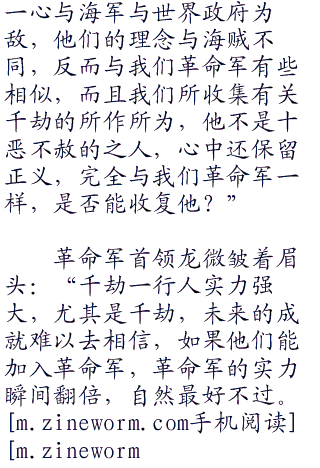 一心与海军与世界政府为
敌，他们的理念与海贼不
同，反而与我们革命军有些
相似，而且我们所收集有关
千劫的所作所为，他不是十
恶不赦的之人，心中还保留
正义，完全与我们革命军一
样，是否能收复他？”
革命军首领龙微皱着眉
头：“千劫一行人实力强
大，尤其是千劫，未来的成
就难以去相信，如果他们能
加入革命军，革命军的实力
瞬间翻倍，自然最好不过。
[m.zineworm.com手机阅读]
[m.zineworm